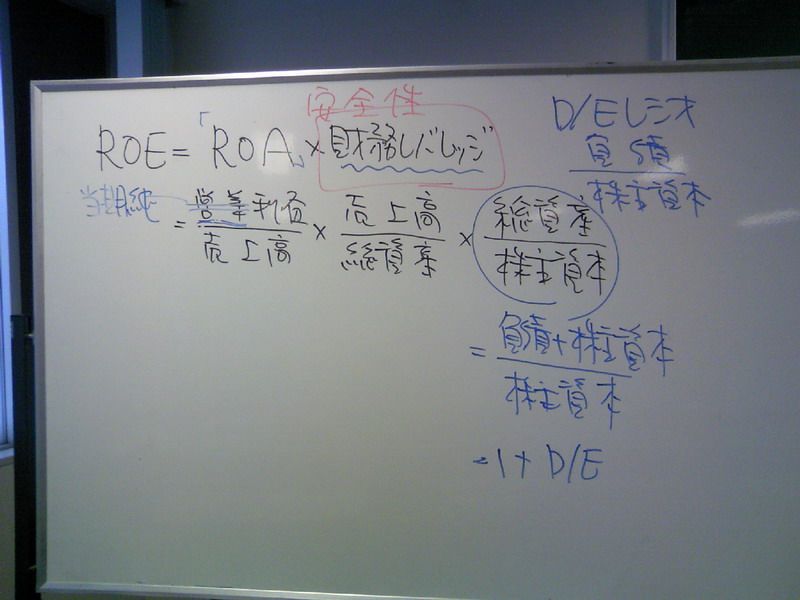 安全性
ROE=「ROA」×財務レバレッジ
当期純
=営業利益/売上高×売上高/総資産×総資産/株主資本
D/Eレシオ
負債
株主資本
=負債+株主資本
株主資本
=1+D/E